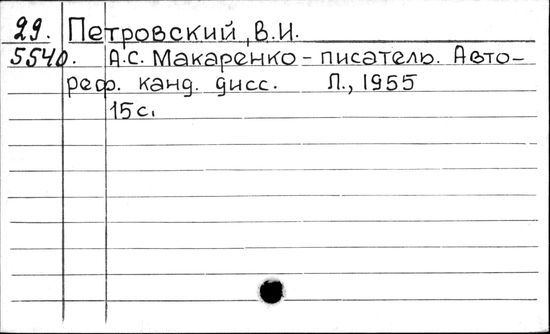 29. Петровский, В.И.
5540. А.С. Макаренко - писатель. Авто-
реф. канд. дисс. Л., 1955
15 с.